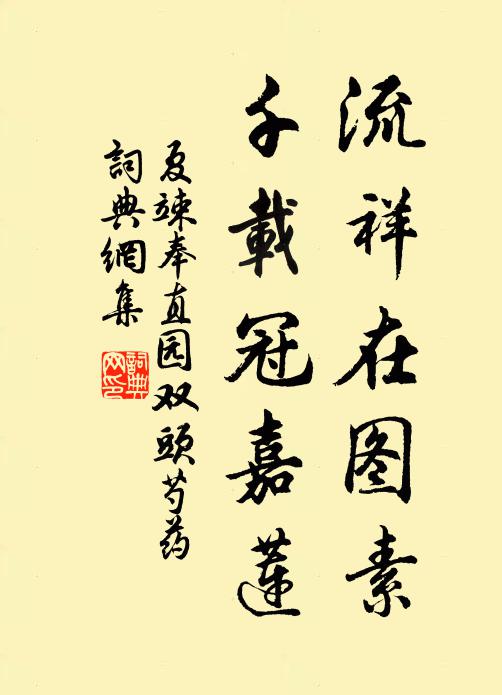 流祥在图素
千載冠嘉蓮
夏竦奉直园双頭芍药
詞典網集
詞典網印